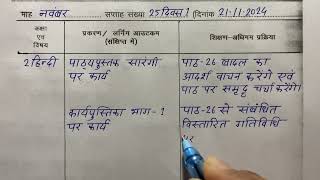 माह नवंबर सप्ताह संख्या 25 दिवस 1 (दिनांक 21-11-2024
कक्षा एवं विषय
प्रकरण/ लर्निंग आउटकम (संक्षिप्त में)
शिक्षण-अधिगम प्रक्रिया
2 हिन्दी
पाठ्यपुस्तक सारंगी
पर कार्य
पाठ-26 बादल का
आदर्श वाचन करेंगे एवं
पाठ पर समृद्ध चर्चा करेंगे।
कार्यपुस्तिका भाग-1
पर कार्य
पाठ-26 से संबंधित
विस्तारित गतिविधि